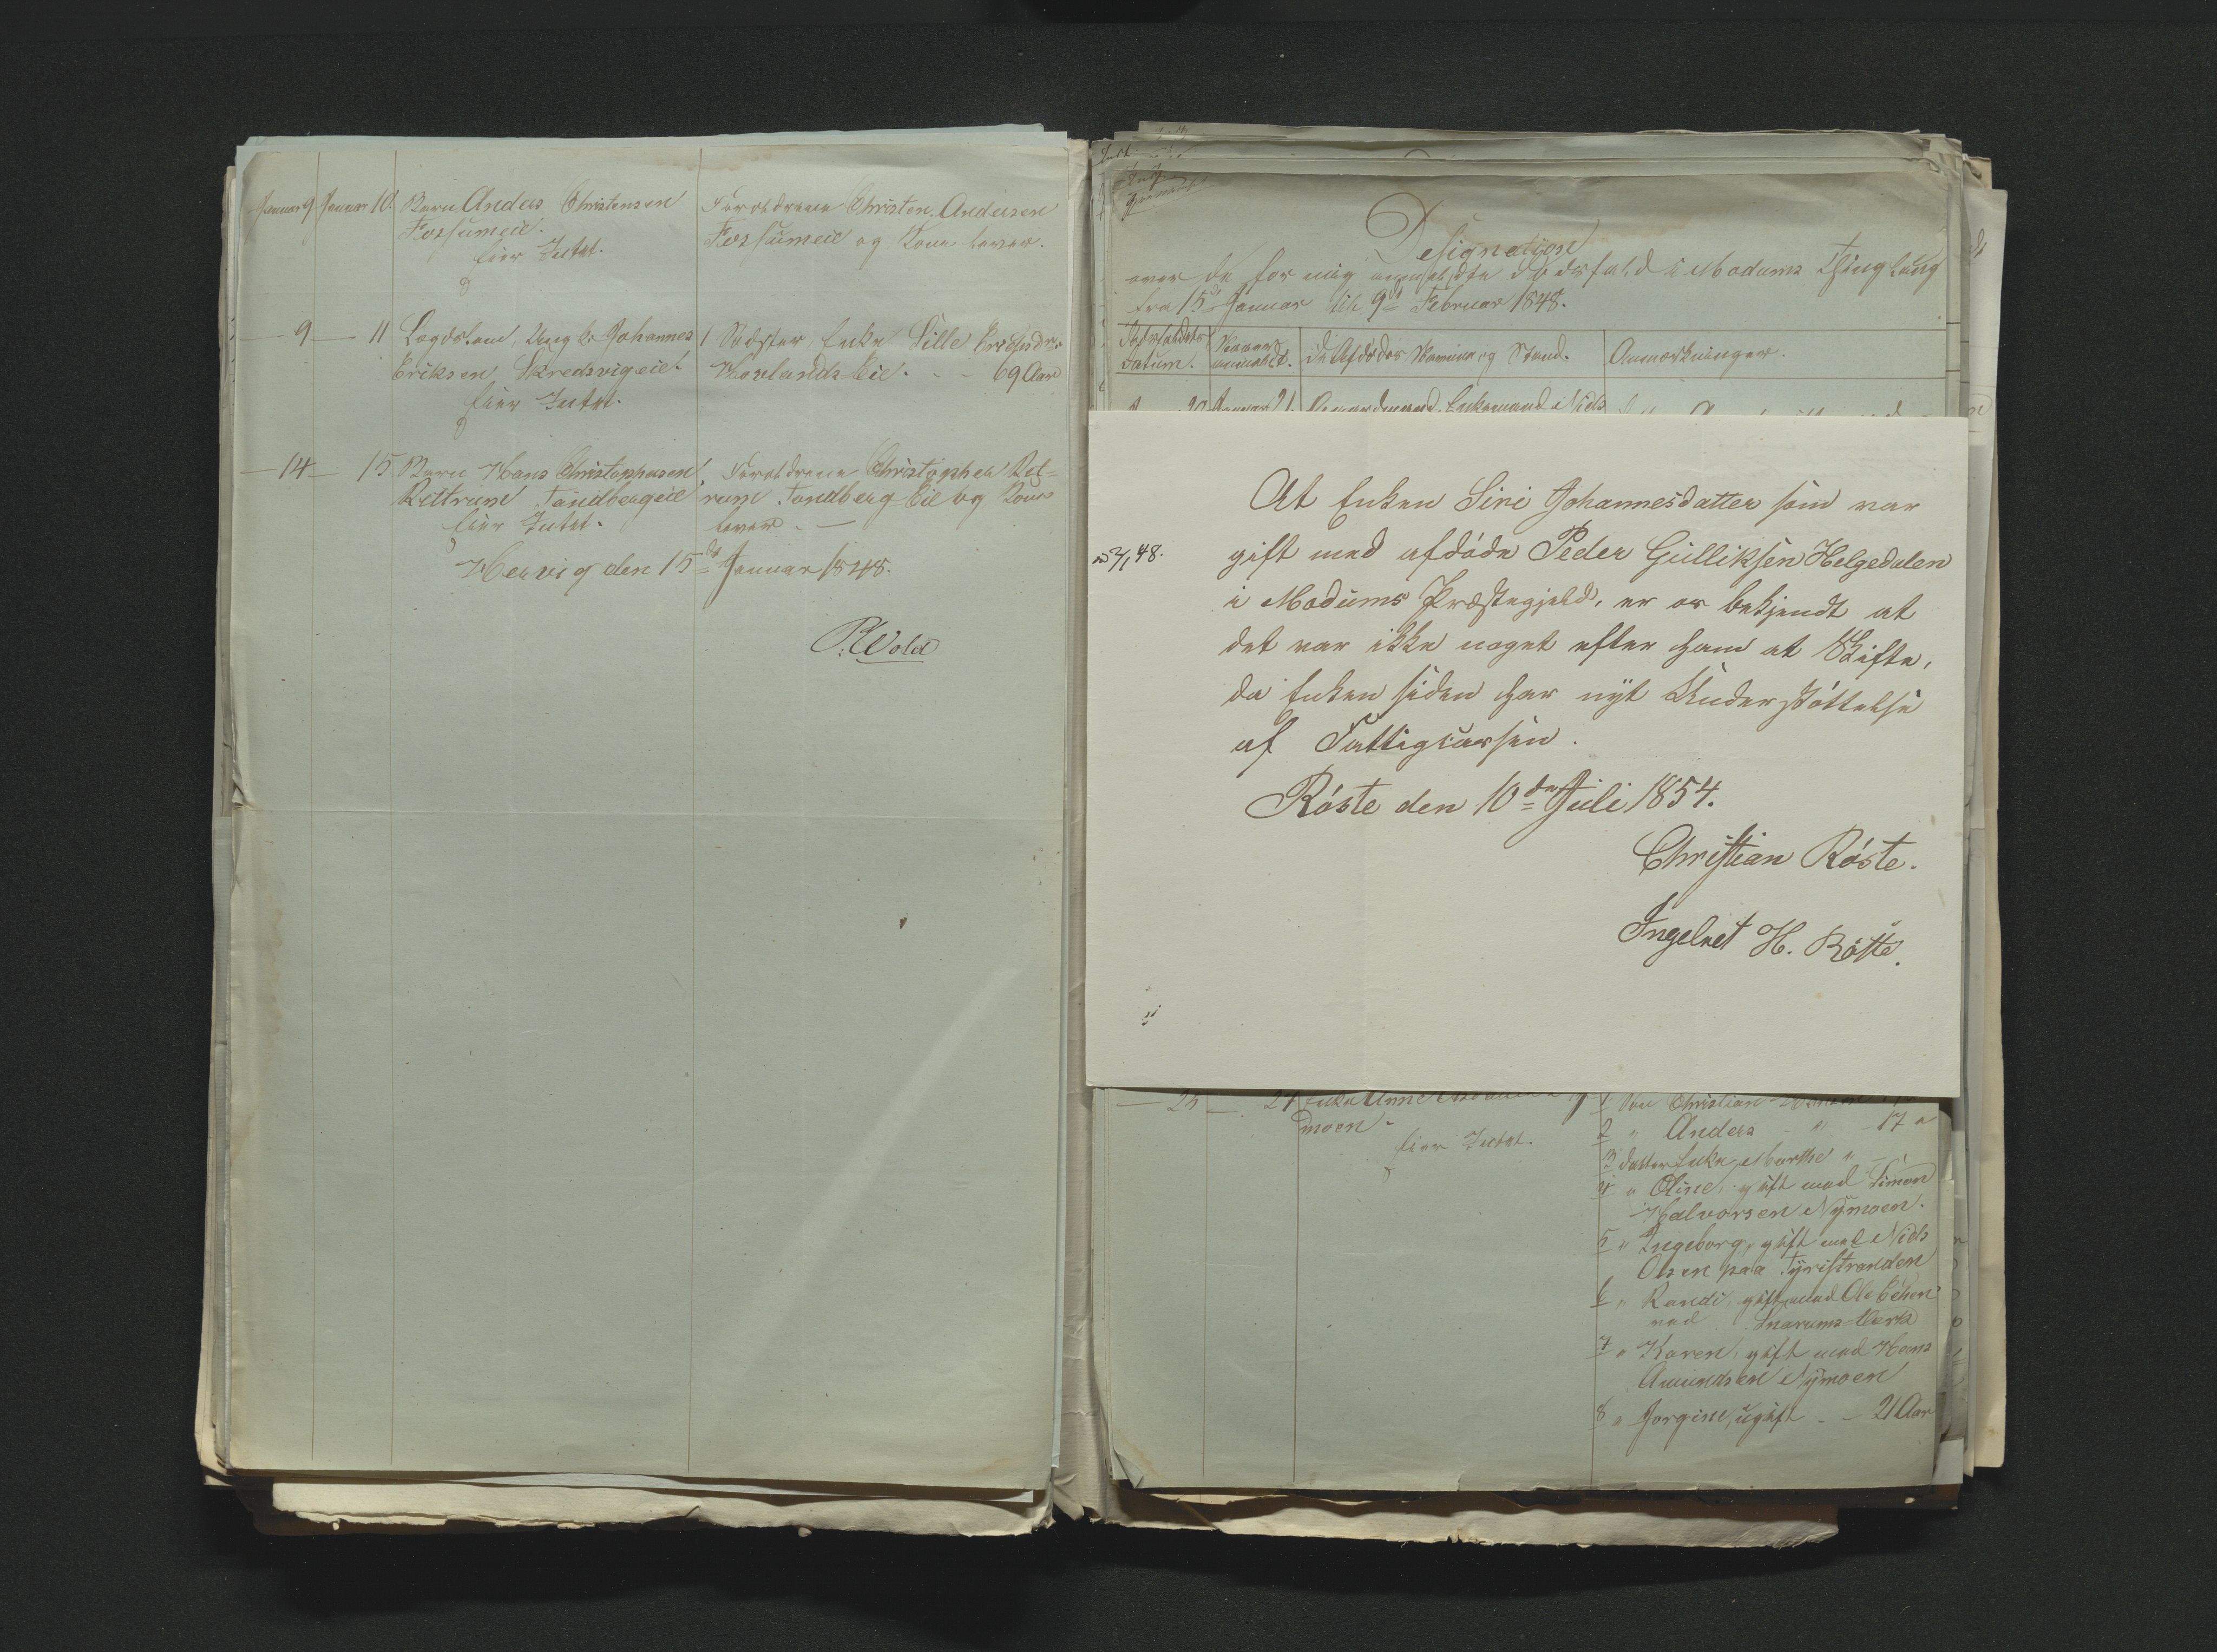 Januar 9 Januar 10. Barn Anders Christensen
Forsumeie.
Eier Intet.
Forældrene Christen Andersen
Forsumeie og Kone lever.
— 9 — 11 Lægdslem, Ungkr Johannes
Eriksen Skredsvigeie.
Eier Intet.
1 Søster, Enke Sille Eriksdr.
Hovlands Eie. - - 69 Aar
— 14 — 15 Barn Hans Christophersen
Rettrum Tandbergeie
Eier Intet.
Forældrene Christopher Ret-
rum Tandberg Eie og Kone
lever. —
Hervig den 15de Januar 1848.
P. Wold
Designation
over de for mig anmeldte Dødsfald i Modums Thinglaug
fra 15de Januar til 9de Februar 1848.
Dødsfaldets
Datum.
Naar
anmeldt.
de Afdødes Navne og Stand.
Anmærkninger.
Januar 21
Gaardmand, Enkemand Niels
27/7, 48.
At Enken Siri Johannesdatter som var
gift med afdøde Peder Gulliksen Helgedalen
i Modums Præstegjeld, er os bekjendt at
det var ikke noget efter ham at Skifte,
da Enken siden har nÿt Understøttelse
af Fattigcassen.
Røste den 10de Juli 1854.
Christian Røste.
Ingebret H. Røste.
Enke Anne
moen.
Eier Intet.
1 Søn Christian
2 " Anders " - 17 "
3 datter Enke Marthe "
4 " Oline, gift med Simon
Halvorsen Nÿmoen.
5 " Ingeborg, gift med Niels
Olsen paa Tÿristranden
6 " Randi, gift med Ole
ved Snarums Værk
7 " Karen, gift med Hans
Amundsen Nÿmoen
8 " Jørgine, ugift - - 21 Aar